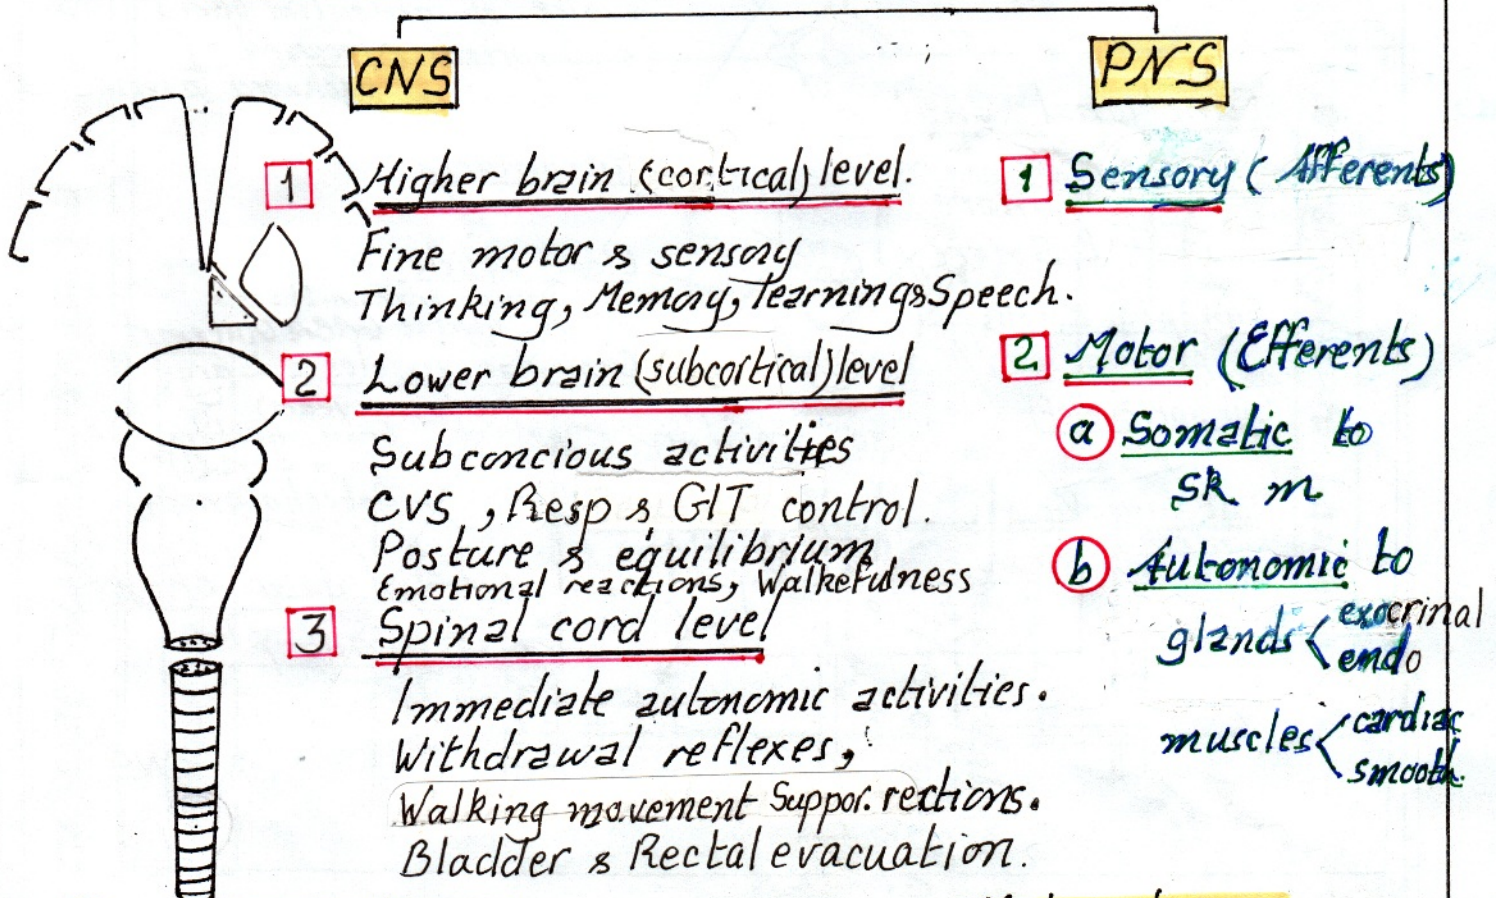 CNS
PNS
1 Higher brain (cortical) level.
Fine motor & sensory
Thinking, Memory, learning & Speech.
2 Lower brain (subcortical) level
Subconcious activities
CVS , Resp & GIT control.
Posture & equilibrium
Emotional reactions, Walkefulness
3 Spinal cord level
Immediate autonomic activities.
Withdrawal reflexes,
Walking movement Suppor. rections.
Bladder & Rectal evacuation.
1 Sensory (Afferents)
2 Motor (Efferents)
a Somatic to
SK m
b Autonomic to
glands exocrinal
endo
muscles cardiac
smooth.